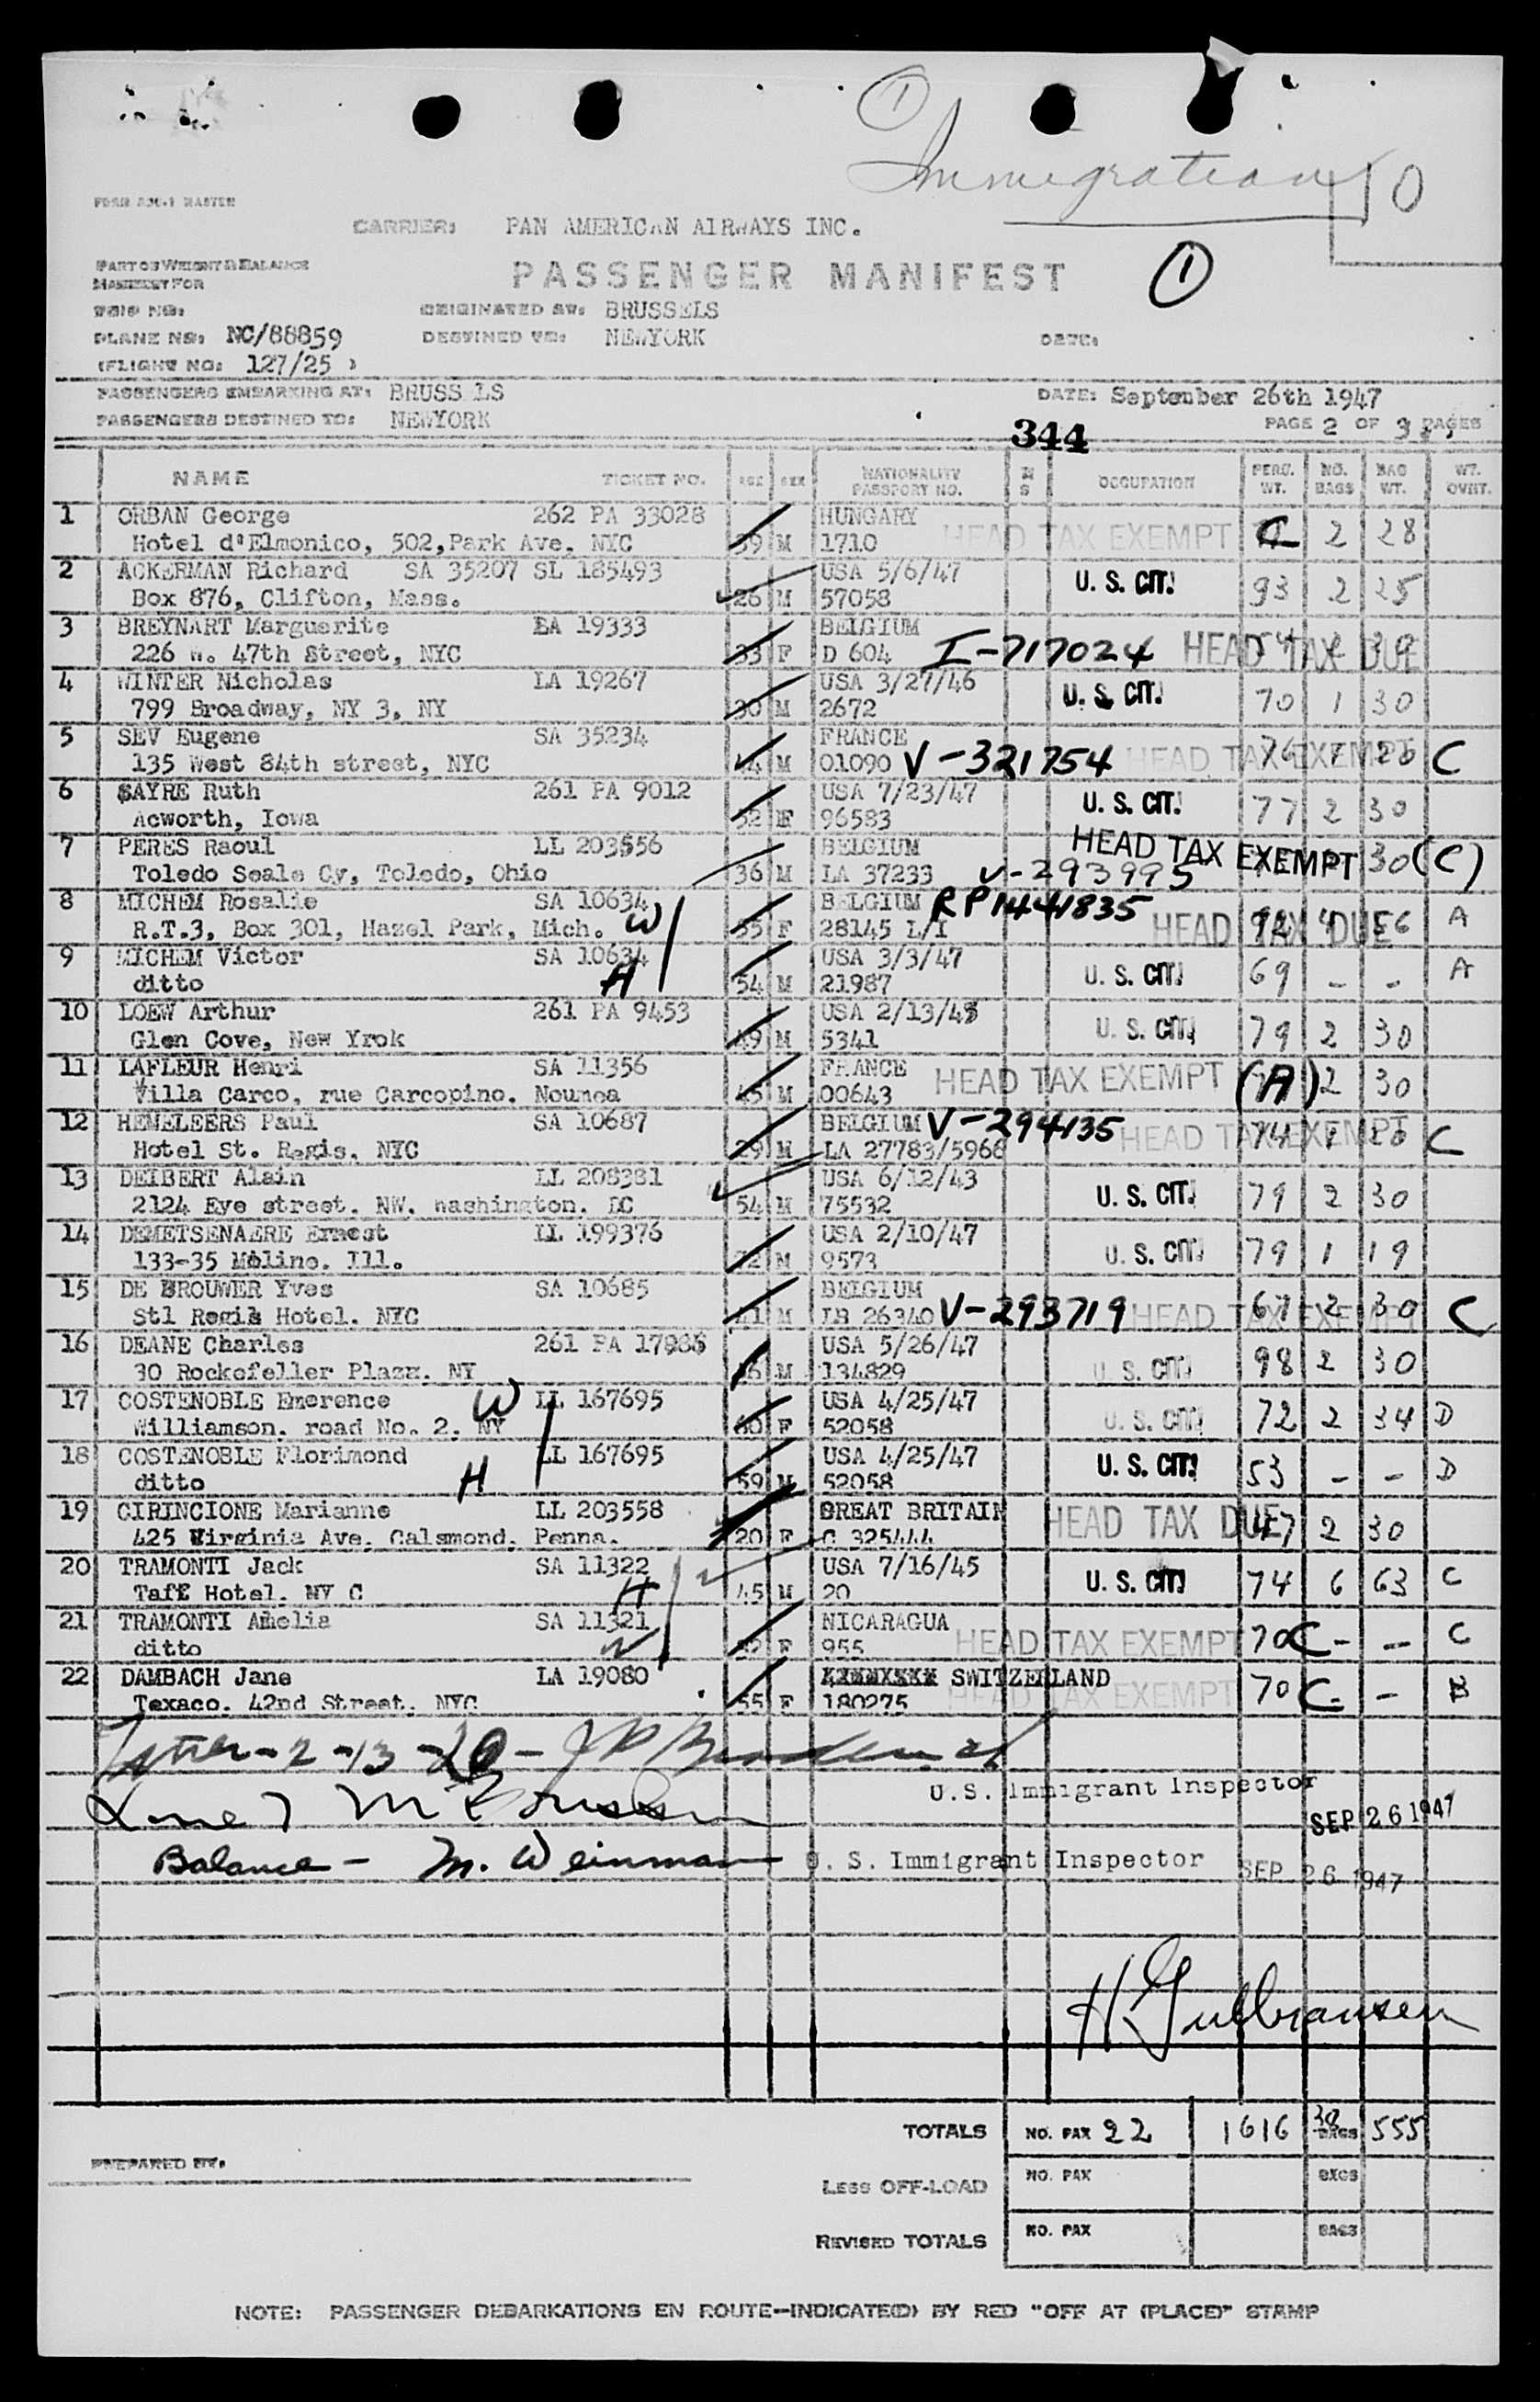 ①
Immigration 10
FORM AM-1 MASTER
CARRIER: PAN AMERICAN AIRWAYS INC.
PART OF WEIGHT & BALANCE
MANIFEST FOR
PASSENGER MANIFEST ①
TRIP NO:
ORIGINATED AT: BRUSSELS
PLANE NO: NC/88859
DESTINED TO: NEWYORK
DATE:
(FLIGHT NO: 127/25 )
PASSENGERS EMBARKING AT: BRUSS LS
DATE: September 26th 1947
PASSENGERS DESTINED TO: NEWYORK
344
PAGE 2 OF 3 PAGES
NAME TICKET NO. AGE SEX NATIONALITY PASSPORT NO. M S OCCUPATION PERS. WT. NO. BAGS BAG WT. WT. OVRT.
1 ORBAN George 262 PA 33028 HUNGARY HEAD TAX EXEMPT C 2 28
Hotel d'Elmonico, 502,Park Ave. NYC 39 M 1710
2 ACKERMAN Richard SA 35207 SL 185493 USA 5/6/47 U. S. CIT. 93 2 25
Box 876, Clifton, Mass. 26 M 57058
3 BREYNART Marguerite LA 19333 BELGIUM
226 W. 47th Street, NYC 33 F D 604 I-717024 HEAD TAX DUE
4 WINTER Nicholas LA 19267 USA 3/27/46 U. S. CIT. 70 1 30
799 Broadway, NY 3, NY 30 M 2672
5 SEV Eugene SA 35234 FRANCE
135 West 84th street, NYC 44 M 01090 V-321754 HEAD TAX EXEMPT C
6 SAYRE Ruth 261 PA 9012 USA 7/23/47 U. S. CIT. 77 2 30
Acworth, Iowa 52 F 96583
7 PERES Raoul LL 203556 BELGIUM HEAD TAX EXEMPT 30 (C)
Toledo Scale Cy, Toledo, Ohio 36 M LA 37233 V-293995
8 MICHEM Rosalie SA 10634 BELGIUM RP1441835
R.T.3, Box 301, Hazel Park, Mich. W 55 F 28145 L/I HEAD TAX DUE 56 A
9 MICHEM Victor SA 10634 USA 3/3/47 U. S. CIT. 69 - - A
ditto H 54 M 21987
10 LOEW Arthur 261 PA 9453 USA 2/13/48 U. S. CIT. 79 2 30
Glen Cove, New Yrok 49 M 5341
11 LAFLEUR Henri SA 11356 FRANCE HEAD TAX EXEMPT (A) 2 30
Villa Carco, rue Carcopino. Noumea 45 M 00643
12 HEMELEERS Paul SA 10687 BELGIUM V-294135
Hotel St. Regis. NYC 29 M LA 27783/5968 HEAD TAX EXEMPT C
13 DEIBERT Alain LL 208381 USA 6/12/43 U. S. CIT. 79 2 30
2124 Eye street. NW. washington. DC 54 M 75532
14 DEMETSENAERE Ernest LL 199376 USA 2/10/47 U. S. CIT. 79 1 19
133-35 Moline. Ill. M 9573
15 DE BROUWER Yves SA 10685 BELGIUM
Stl Regis Hotel. NYC 41 M LB 26340 V-293719 HEAD TAX EXEMPT 67 2 30 C
16 DEANE Charles 261 PA 17988 USA 5/26/47 U. S. CIT. 98 2 30
30 Rockefeller Plaza. NY M 134829
17 COSTENOBLE Emerence W LL 167695 USA 4/25/47 U. S. CIT. 72 2 34 D
Williamson. road No. 2. NY 60 F 52058
18 COSTENOBLE Florimond LL 167695 USA 4/25/47 U. S. CIT. 53 - - D
ditto H 59 M 52058
19 CIRINCIONE Marianne LL 203558 GREAT BRITAIN HEAD TAX DUE 47 2 30
425 Virginia Ave. Calsmond. Penna. 20 F C 325444
20 TRAMONTI Jack SA 11322 USA 7/16/45 U. S. CIT. 74 6 63 C
Taft Hotel. NY C H 45 M 20
21 TRAMONTI Amelia SA 11321 NICARAGUA
ditto W F 955 HEAD TAX EXEMPT 70 C - - C
22 DAMBACH Jane LA 19080 SWITZERLAND
Texaco. 42nd Street. NYC 55 F 180275 HEAD TAX EXEMPT 70 C - - B
2-13-20-
U.S. Immigrant Inspector
SEP 26 1947
Balance - M. Weinman U. S. Immigrant Inspector SEP 26 1947
H. Gulbransen
TOTALS NO. PAX 22 1616 38 BAGS 555
PREPARED BY:
LESS OFF-LOAD NO. PAX BAGS
REVISED TOTALS NO. PAX BAGS
NOTE: PASSENGER DEBARKATIONS EN ROUTE—INDICATE(D) BY RED "OFF AT (PLACE)" STAMP